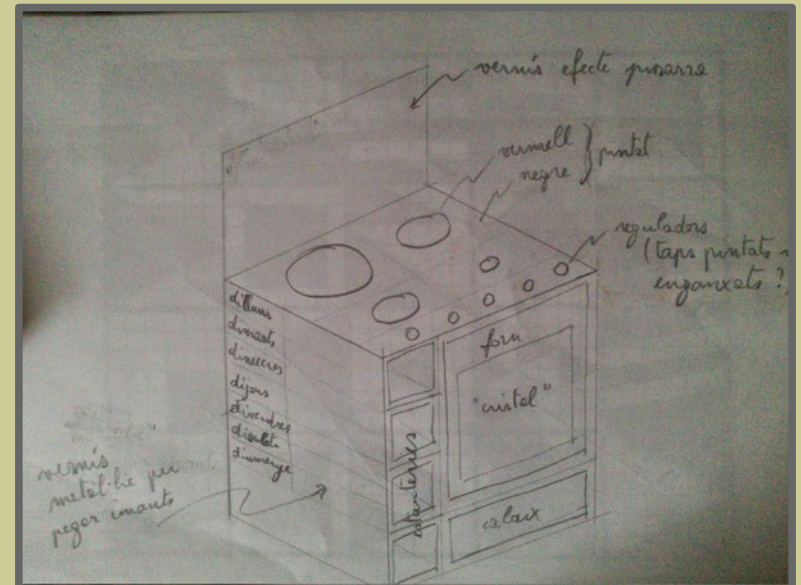 vernís efecte pissarra
vermell
negre
pintat
reguladors
(taps pintats
enganxats?)
dilluns
dimarts
dimecres
dijous
divendres
dissabte
diumenge
forn
"cristal"
estanteries
calaix
vernís
metàl·lic per
pegar imants